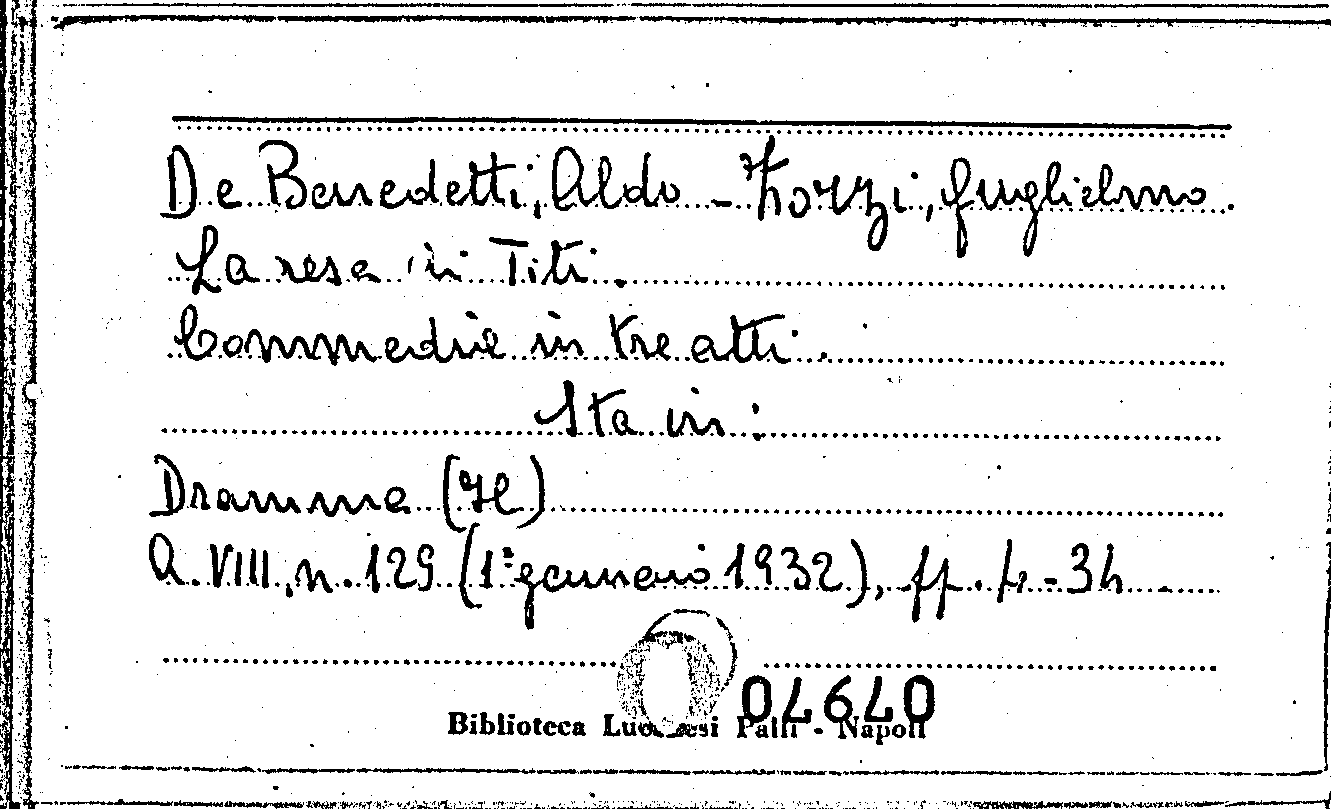 De Benedetti, Aldo - Zorzi, Guglielmo.
La resa in Titì.
Commedia in tre atti.
Sta in:
Dramma (Il)
A. VIII, n. 129 (1° gennaio 1932), pp. 4-34
04640
Biblioteca Lucchesi Palli - Napoli